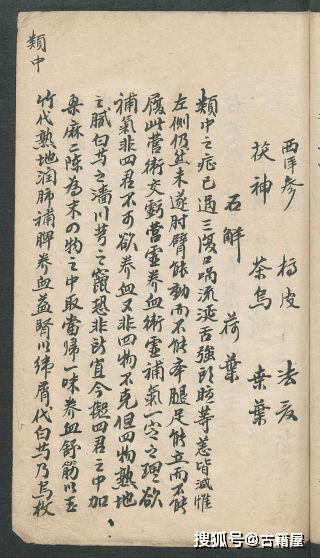 西洋參 橘皮 法夏
茯神 茶烏 桑葉
石斛 荷葉
類中之症已過三候口喎流涎舌強頭眩等恙皆減惟
左側仍然未遂肘臂能動而不能舉腿足能立而不能
履此營衛交虧營虛養血衛虛補氣一定之理欲
補氣非四君不可欲養血又非四物不克但四物熟地
之膩白芍之濇川芎之竄恐非所宜今擬四君之中加
桑麻二陳為末四物之中取當歸一味養血舒筋以玉
竹代熟地潤肺補脾養血益腎以綿屑代白芍乃烏枚
類中
搜狐号@古籍屋